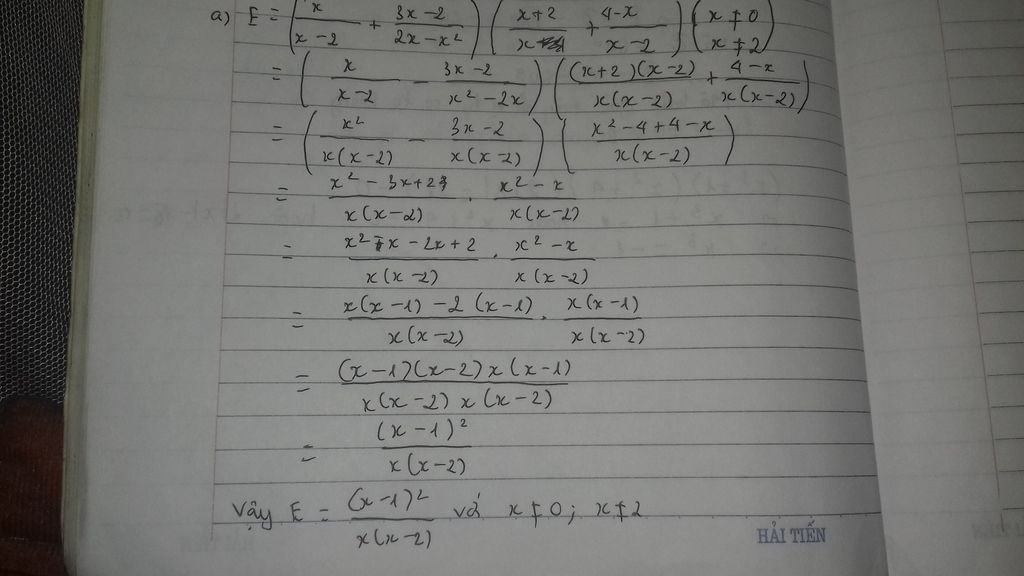 a) E = (x/(x-2) + (3x-2)/(2x-x²)) ((x+2)/x + (4-x)/(x-2)) (x≠0 x≠2)
= (x/(x-2) - (3x-2)/(x²-2x)) ((x+2)(x-2)/(x(x-2)) + (4-x)/(x(x-2)))
= (x²/(x(x-2)) - (3x-2)/(x(x-2))) ((x²-4+4-x)/(x(x-2)))
= (x²-3x+2)/(x(x-2)) . (x²-x)/(x(x-2))
= (x²-x-2x+2)/(x(x-2)) . (x²-x)/(x(x-2))
= (x(x-1)-2(x-1))/(x(x-2)) . x(x-1)/(x(x-2))
= (x-1)(x-2)x(x-1)/(x(x-2)x(x-2))
= (x-1)²/(x(x-2))
Vậy E = (x-1)²/(x(x-2)) với x≠0; x≠2
HẢI TIẾN